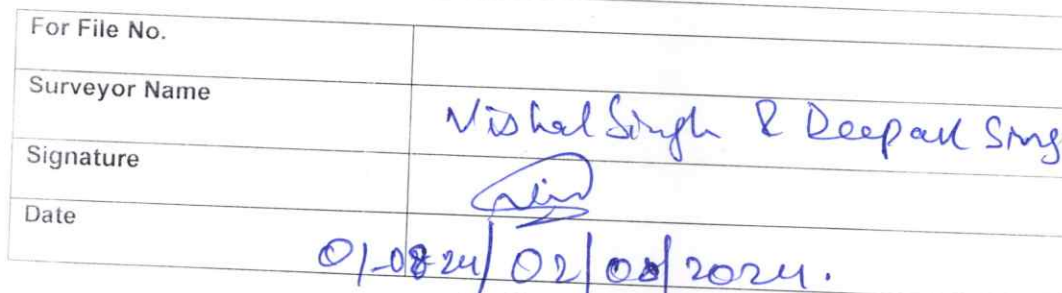 For File No.
Surveyor Name Vishal Singh & Deepak Sing
Signature
Date 01-08-24/02/08/2024.